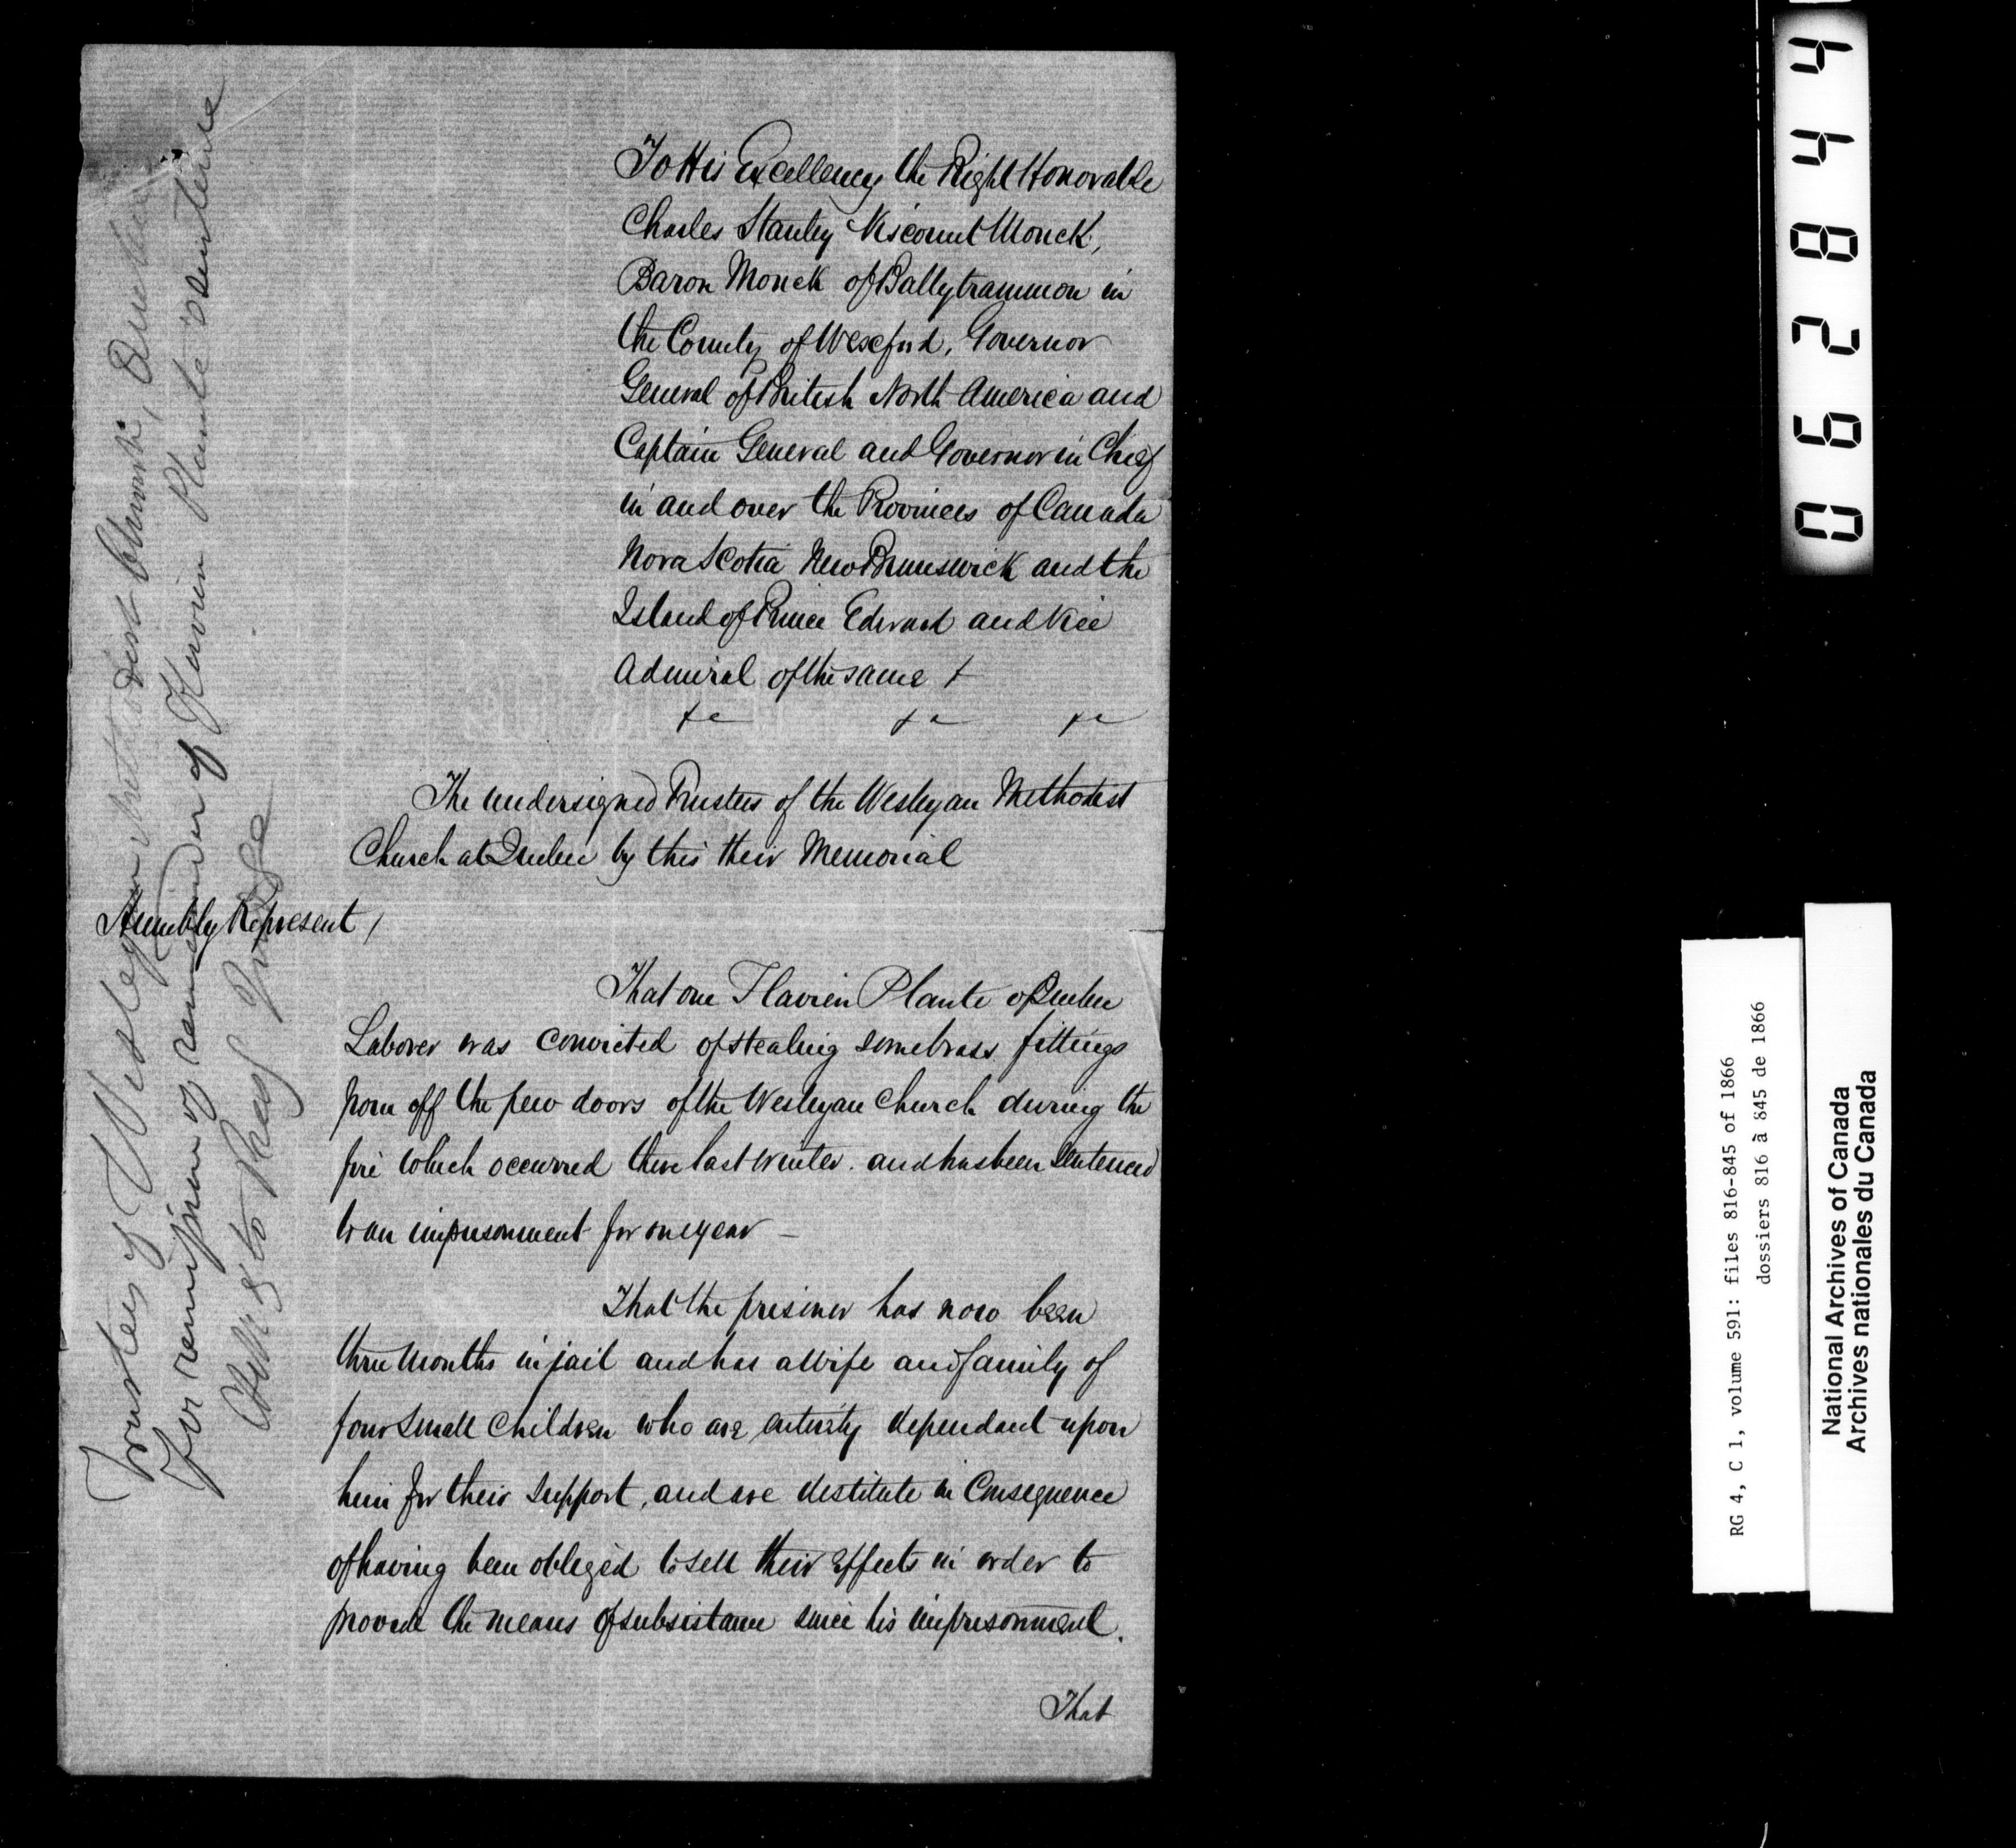 To His Excellency the Right Honorable
Charles Stanley Viscount Monck,
Baron Monck of Ballytrammon in
the County of Wexford, Governor
General of British North America and
Captain General and Governor in Chief
in and over the Provinces of Canada
Nova Scotia New Brunswick and the
Island of Prince Edward and Vice
Admiral of the same &
&c &c &c
The undersigned Trustees of the Wesleyan Methodist
Church at Quebec by this their Memorial
Humbly Represent /
That one Flavien Plante of Quebec
Laborer was convicted of stealing some brass fittings
from off the pew doors of the Wesleyan Church during the
fire which occurred there last winter. and has been sentenced
to an imprisonment for one year —
That the prisoner has now been
three months in jail and has a wife and family of
four small children who are entirely dependant upon
him for their support, and are destitute in consequence
of having been obliged to sell their effects in order to
provide the means of subsistance since his imprisonment.
That
Trustees of Wesleyan Methodist Church, Quebec
for remission of remainder of Flavien Plante's sentence
to Judge
062844
RG 4, C 1, volume 591: files 816-845 of 1866
dossiers 816 à 845 de 1866
National Archives of Canada
Archives nationales du Canada